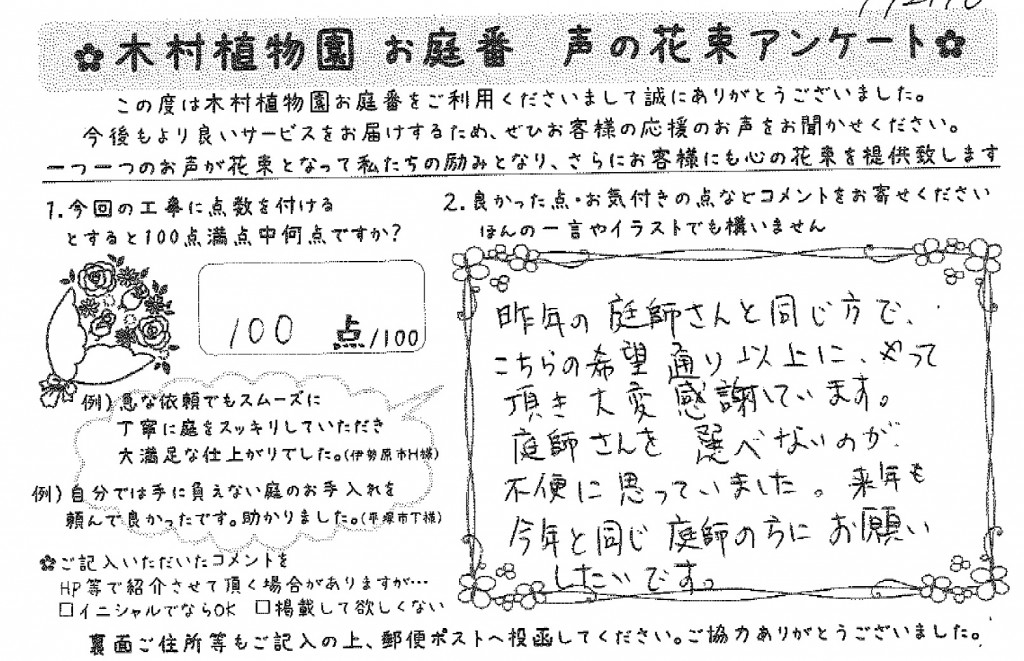 ✿木村植物園 お庭番 声の花束アンケート✿
この度は木村植物園お庭番をご利用くださいまして誠にありがとうございました。
今後もより良いサービスをお届けするため、ぜひお客様の応援のお声をお聞かせください。
一つ一つのお声が花束となって私たちの励みとなり、さらにお客様にも心の花束を提供致します
1.今回の工事に点数を付ける
とすると100点満点中何点ですか?
100 点/100
例)急な依頼でもスムーズに
丁寧に庭をスッキリしていただき
大満足な仕上がりでした。(伊勢原市H様)
例)自分では手に負えない庭のお手入れを
頼んで良かったです。助かりました。(平塚市T様)
✿ご記入いただいたコメントを
HP等で紹介させて頂く場合がありますが…
□イニシャルでならOK □掲載して欲しくない
2.良かった点・お気付きの点などコメントをお寄せください
ほんの一言やイラストでも構いません
昨年の庭師さんと同じ方で、
こちらの希望通り以上に、やって
頂き大変感謝しています。
庭師さんを選べないのが
不便に思っていました。来年も
今年と同じ庭師の方にお願い
したいです。
裏面ご住所等もご記入の上、郵便ポストへ投函してください。ご協力ありがとうございました。